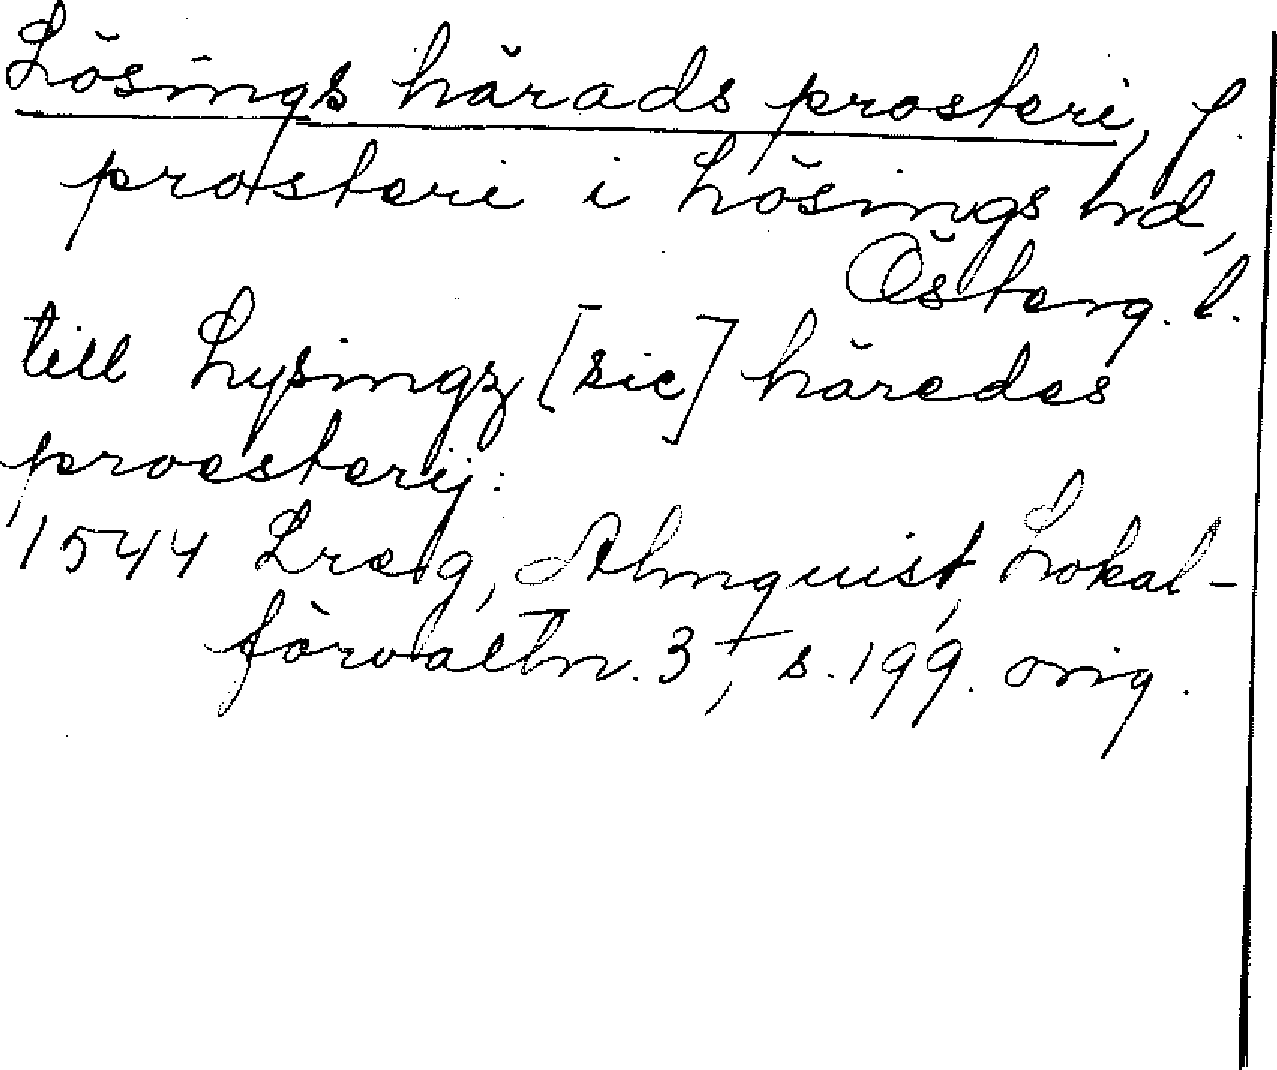 Lösings härads prosteri, f.
prosteri i Lösings hd,
Österg. l.
till Lysingz [sic] häredes
proesterij:
1544 Lreg, Almquist, Lokal-
förvaltn. 3, s. 199. orig.